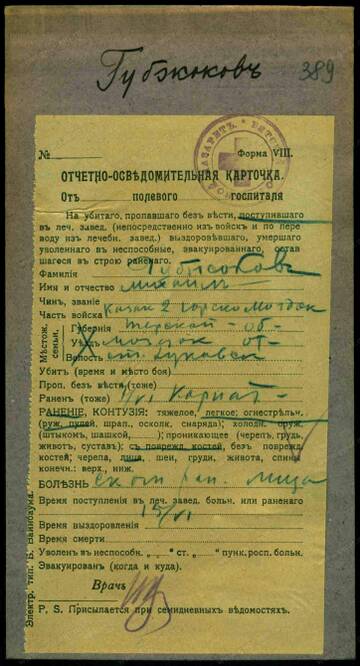 Губжоковъ
389
№
Форма VIII.
ОТЧЕТНО-ОСВѢДОМИТЕЛЬНАЯ КАРТОЧКА.
Отъ полевого госпиталя
На убитаго, пропавшаго безъ вѣсти, поступившаго
въ леч. завед. (непосредственно изъ войскъ и по пере
воду изъ лечебн. завед.) выздоровѣвшаго, умершаго
уволеннаго въ неспособные, эвакуированнаго, остав
шагося въ строю раненаго.
Фамилія Губжоковъ
Имя и отчество Михаилъ
Чинъ, званіе
Часть войска казак 2 Горско Моздок
Мѣстож. семьи.
Губернія Терской об.
Уѣздъ Моздок от.
Волость ст. Луковск
Убитъ (время и мѣсто боя)
Проп. безъ вѣсти (тоже)
Раненъ (тоже) /VI Карпат
РАНЕНІЕ, КОНТУЗІЯ: тяжелое, легкое: огнестрѣльн.
(руж. пулей, шрап., осколк, снаряда); холодн. оруж.
(штыкомъ, шашкой, ); проникающее (черепъ, грудь,
животъ, суставъ); съ поврежд. костей, безъ поврежд
костей; черепа, лица, шеи, груди, живота, спины
конечн.: верх., ниж.
БОЛѢЗНЬ лица
Время поступленія въ леч. завед. больн. или раненаго
15/VI
Время выздоровленія
Время смерти
Уволенъ въ неспособн. „ „ ст. „ пунк. росп. больн.
Эвакуированъ (когда и куда).
Врачъ
P. S. Присылается при семидневныхъ вѣдомостяхъ.
Электр. тип. Б. Вайнбаума.